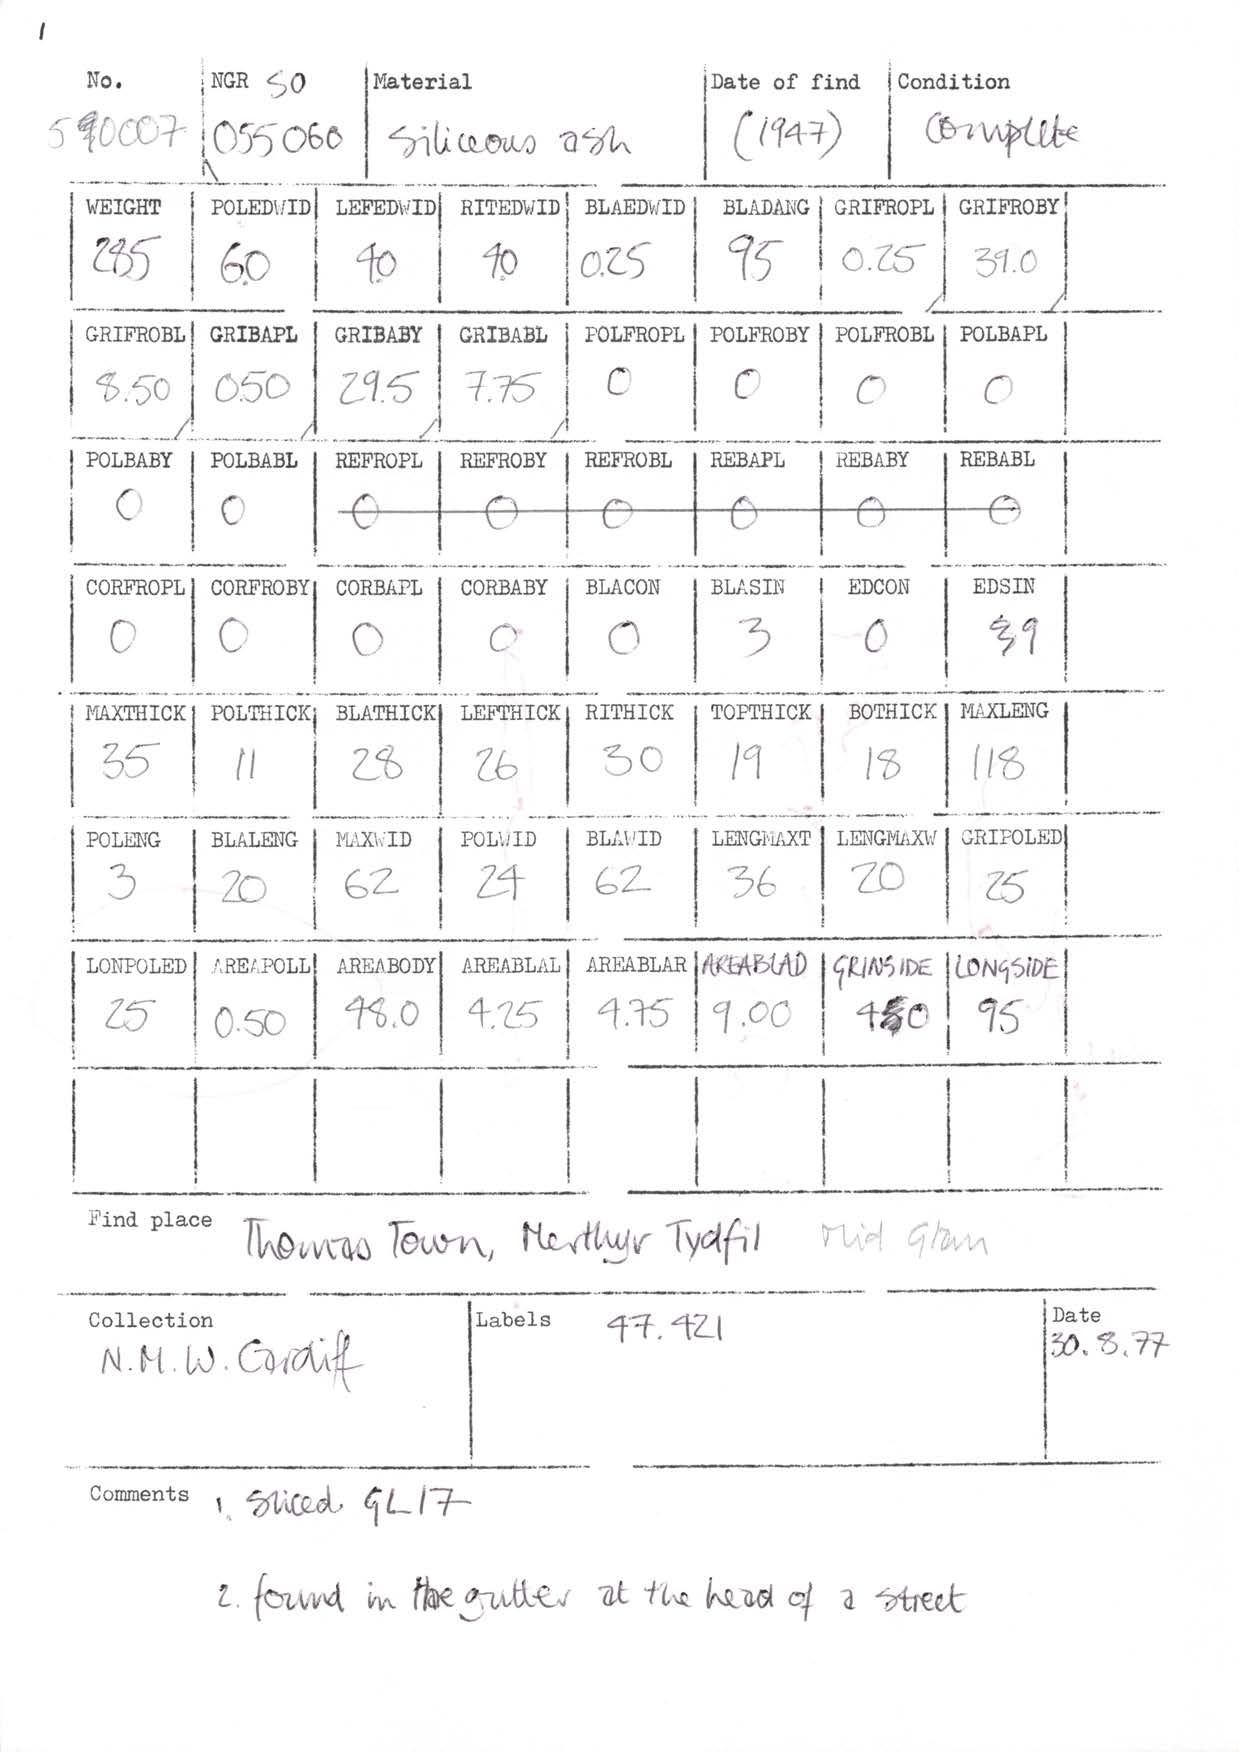 1
No. NGR SO Material Date of find Condition
590007 055060 Siliceous ash (1947) Complete
WEIGHT POLEDWID LEFEDWID RITEDWID BLAEDWID BLADANG GRIFROPL GRIFROBY
285 6.0 4.0 4.0 0.25 95 0.25 39.0
GRIFROBL GRIBAPL GRIBABY GRIBABL POLFROPL POLFROBY POLFROBL POLBAPL
8.50 0.50 29.5 7.75 0 0 0 0
POLBABY POLBABL REFROPL REFROBY REFROBL REBAPL REBABY REBABL
0 0 0 0 0 0 0 0
CORFROPL CORFROBY CORBAPL CORBABY BLACON BLASIN EDCON EDSIN
0 0 0 0 0 3 0 39
MAXTHICK POLTHICK BLATHICK LEFTHICK RITHICK TOPTHICK BOTHICK MAXLENG
35 11 28 26 30 19 18 118
POLENG BLALENG MAXWID POLWID BLAWID LENGMAXT LENGMAXW GRIPOLED
3 20 62 24 62 36 20 25
LONPOLED AREAPOLL AREABODY AREABLAL AREABLAR AREABLAD GRINSIDE LONGSIDE
25 0.50 48.0 4.25 4.75 9.00 95
Find place Thomas Town, Merthyr Tydfil Mid Glam
Collection Labels 47.421 Date
N.M.W. Cardiff 30.8.77
Comments 1. Sliced GL17
2. found in the gutter at the head of a street